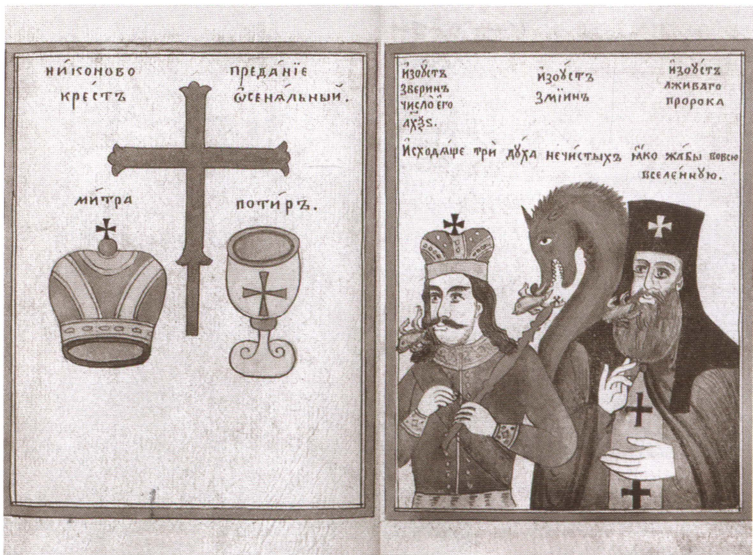 НИ́КОНОВО ПРЕДА́НІЕ
КРЕСТЪ ѾСЕНЯ́ЛЬНЫЙ.
МИ́ТРА ПОТИ́РЪ.
И҆ЗОУ҆́СТЪ
ЗВЕРИНЪ
ЧИСЛО̀ Е҆ГО̀
АХ҃ѮЅ.
И҆ЗОУ҆́СТЪ
ЗМІ́ИНЪ
И҆ЗОУ҆́СТЪ
ЛЖИВАГО
ПРОРОКА
И҆СХОДЯ́ЩЕ ТРѝ ДУ́ХА НЕЧИ́СТЫХЪ Ꙗ҆́КО ЖА́БЫ ВОВСЮ
ВСЕЛЕ́ННУЮ.